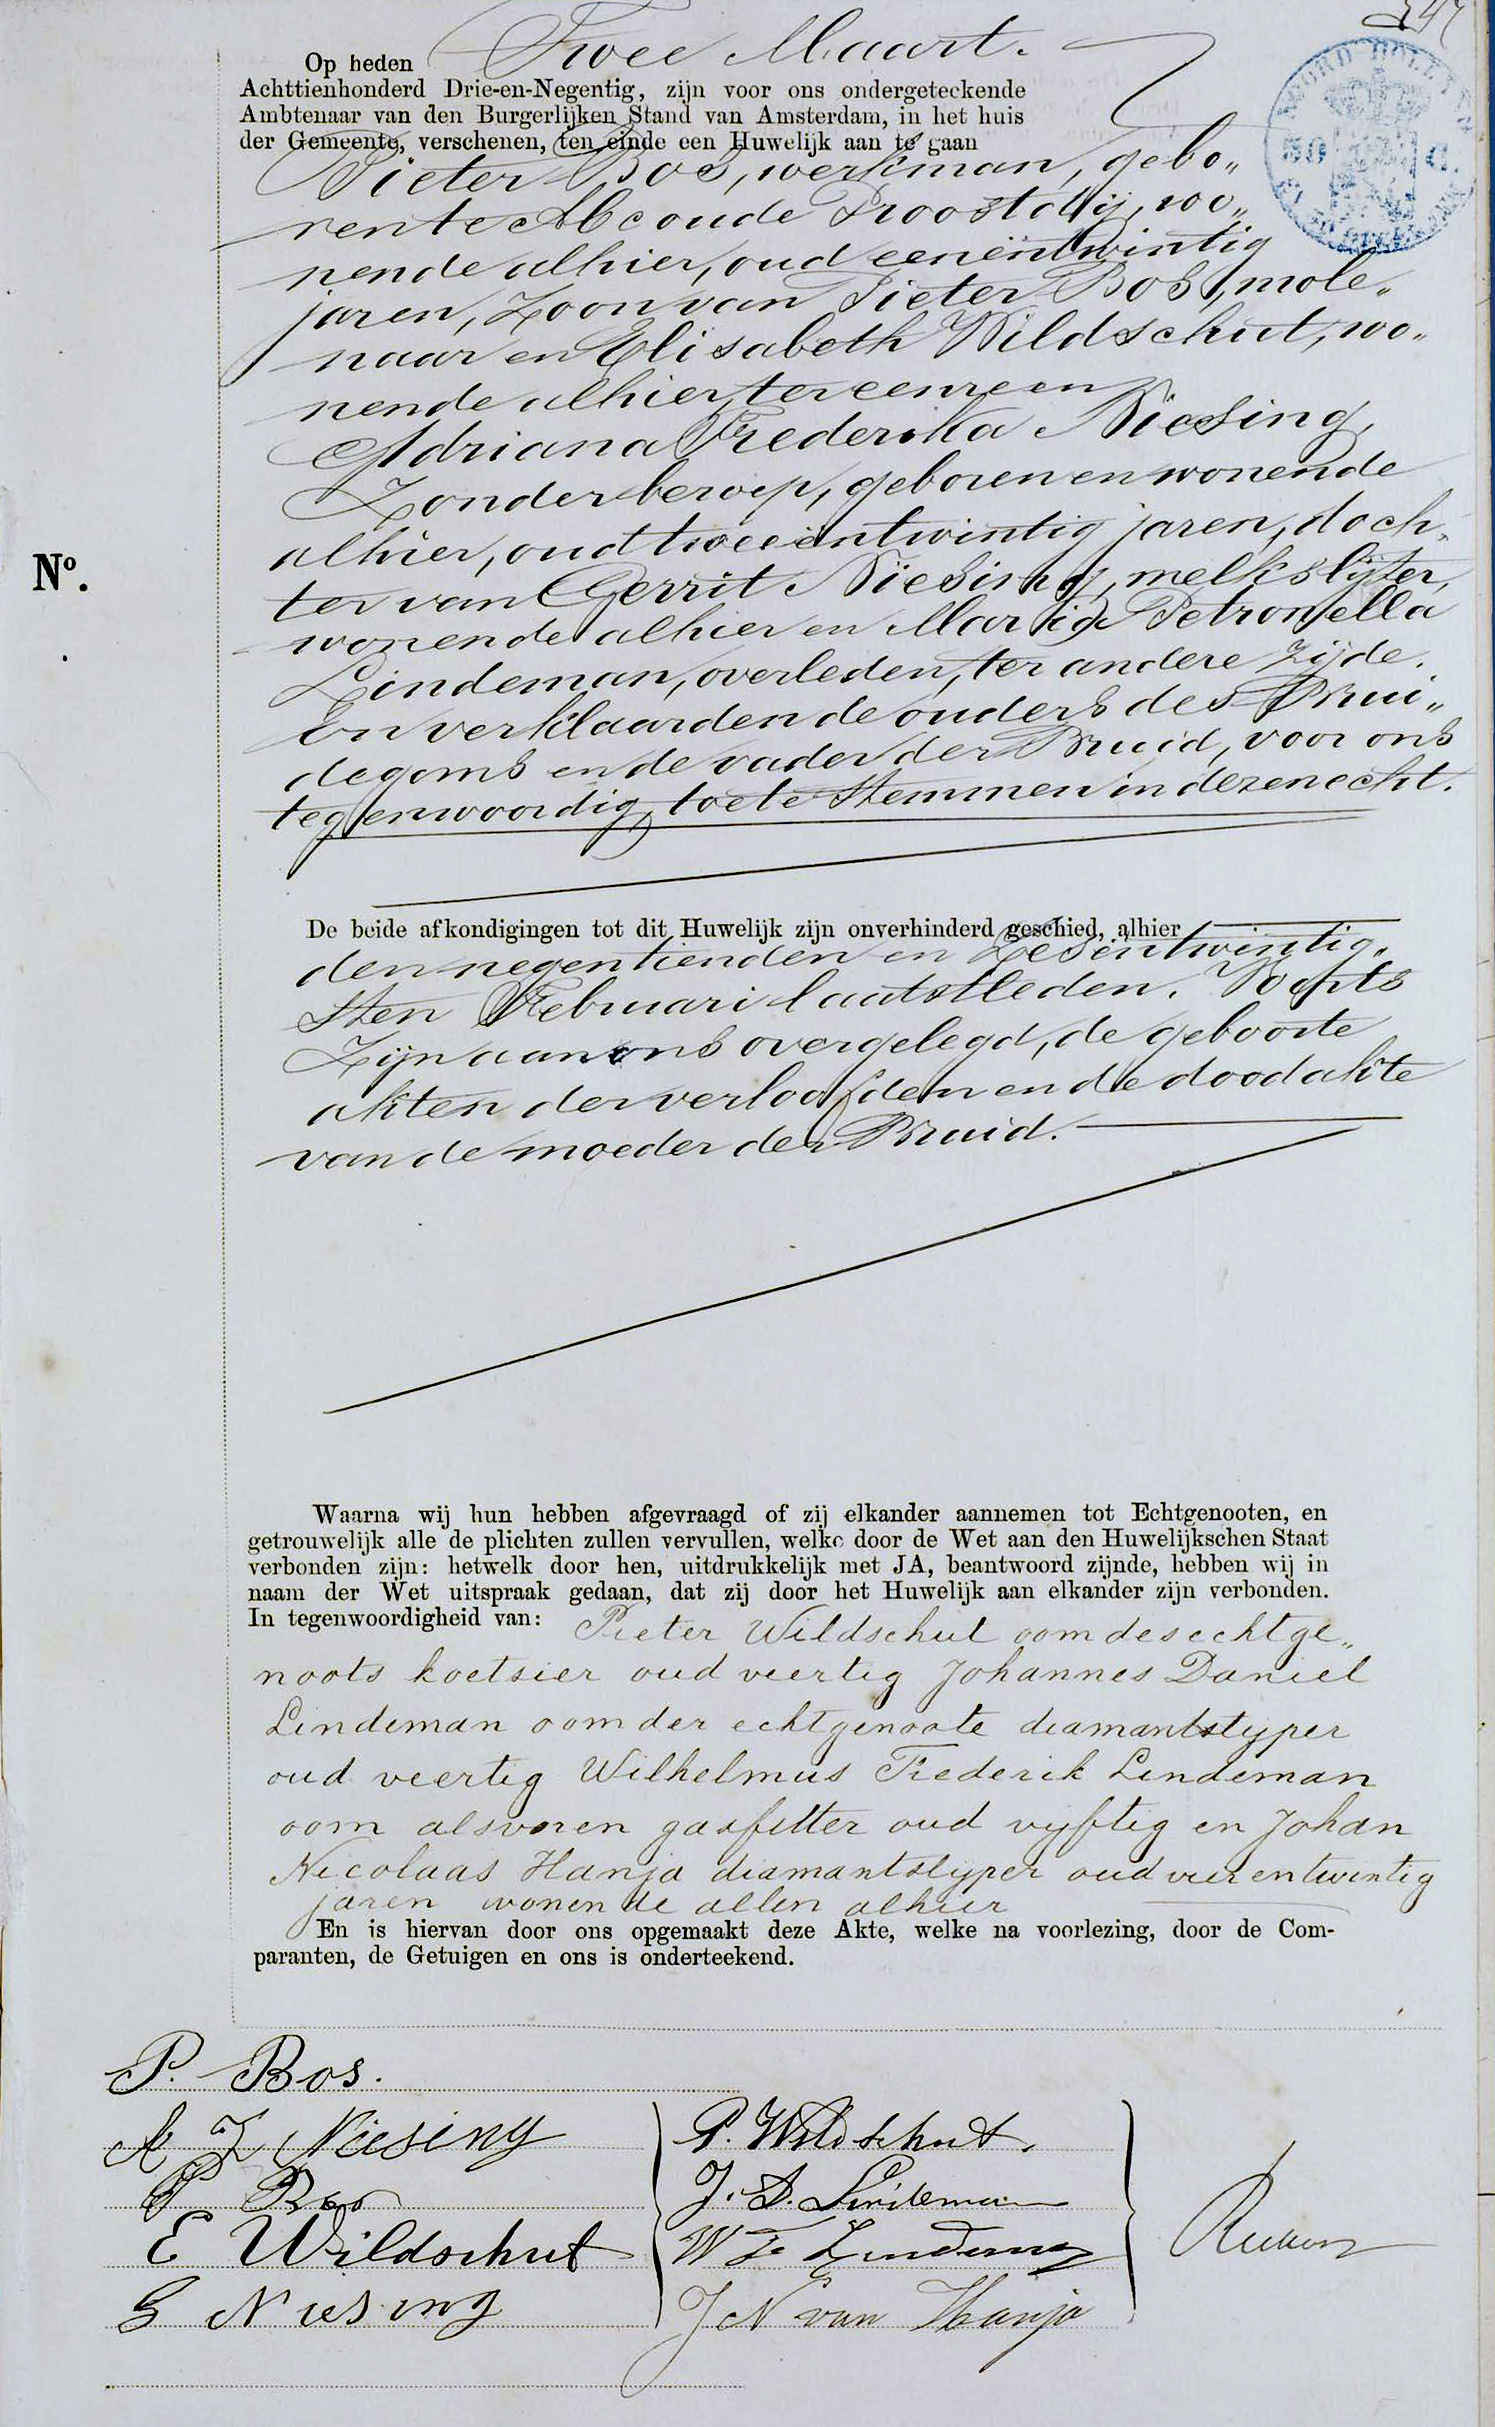 Op heden Twee Maart.
Achttienhonderd Drie-en-Negentig, zijn voor ons ondergeteckende
Ambtenaar van den Burgerlijken Stand van Amsterdam, in het huis
der Gemeente, verschenen, ten einde een Huwelijk aan te gaan
Pieter Bos, werkman, gebo„
ren te Abcoude Proostdij, wo„
nende alhier, oud eenentwintig
jaren, Zoon van Pieter Bos, mole„
naar en Elisabeth Wildschut, wo„
nende alhier, ter eenre en
Adriana Frederika Niesing,
Zonder beroep, geboren en wonende
alhier, oud tweeëntwintig jaren, doch„
ter van Gerrit Niesing, melkslijter,
wonende alhier en Maria Petronella
Lindeman, overleden, ter andere zijde.
En verklaarden de ouders des Brui„
degoms en de vader der Bruid, voor ons
tegenwoordig, toe te stemmen in dezen echt.
No.
De beide afkondigingen tot dit Huwelijk zijn onverhinderd geschied, alhier
den negentienden en Zesentwintig„
sten Februari laatstleden. Voorts
Zijn aan ons overgelegd, de geboorte
akten der verloofden en de doodakte
van de moeder der Bruid.
Waarna wij hun hebben afgevraagd of zij elkander aannemen tot Echtgenooten, en
getrouwelijk alle de plichten zullen vervullen, welke door de Wet aan den Huwelijkschen Staat
verbonden zijn: hetwelk door hen, uitdrukkelijk met JA, beantwoord zijnde, hebben wij in
naam der Wet uitspraak gedaan, dat zij door het Huwelijk aan elkander zijn verbonden.
In tegenwoordigheid van: Pieter Wildschut oom des echtge„
noots koetsier oud veertig Johannes Daniel
Lindeman oom der echtgenoote diamantslijper
oud veertig Wilhelmus Frederik Lindeman
oom alsvoren gasfitter oud vijftig en Johan
Nicolaas Hanja diamantslijper oud vier entwintig
jaren wonende allen alhier
En is hiervan door ons opgemaakt deze Akte, welke na voorlezing, door de Com-
paranten, de Getuigen en ons is onderteekend.
P. Bos.
A F Niesing
P Bos
E Wildschut
G Niesing
P. Wildschut.
J. D. Lindeman
W F Lindeman
J N van Hanja